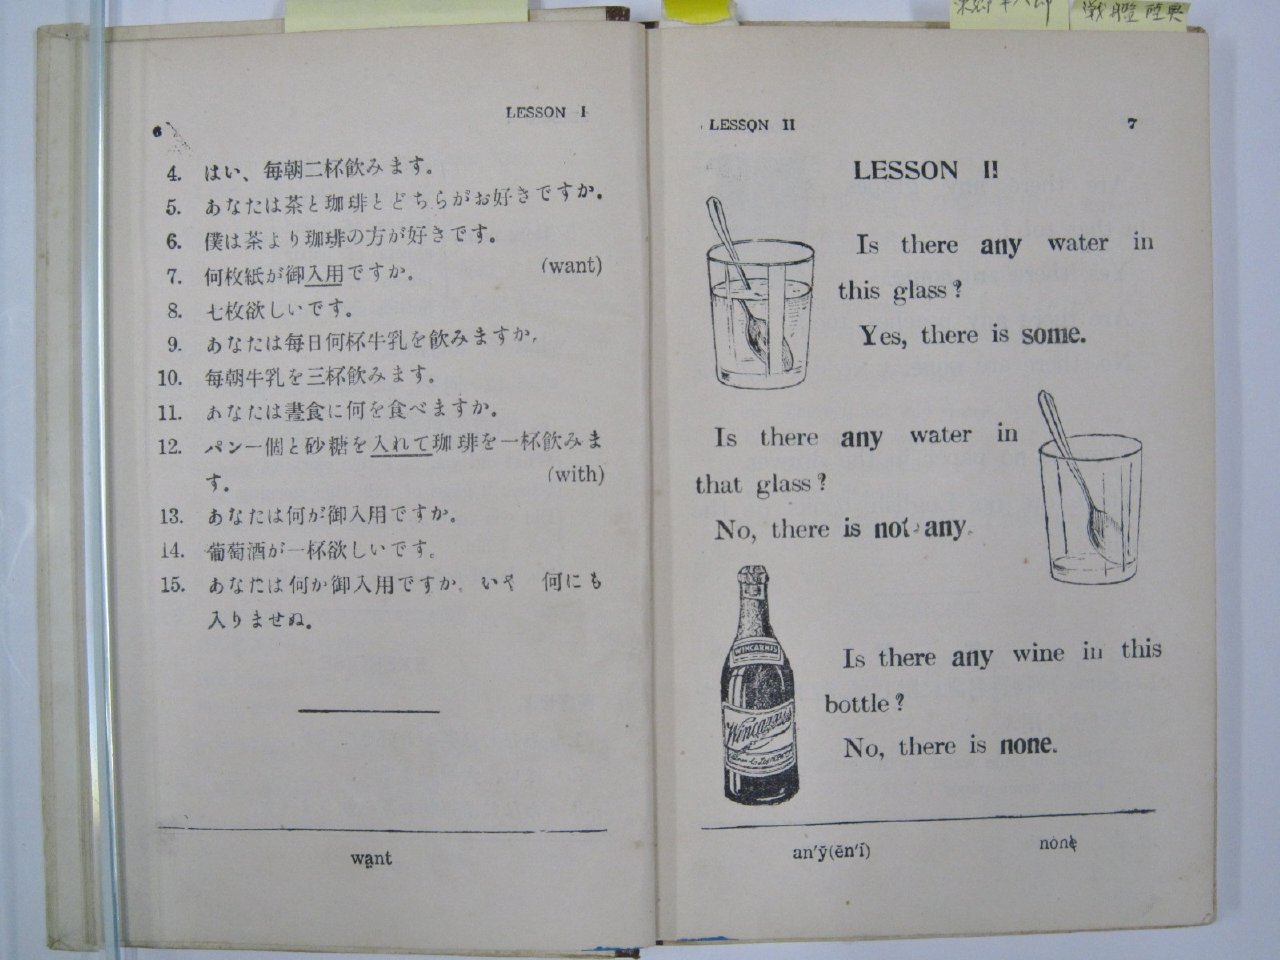 戦艦陸奥
6 LESSON I
4. はい、毎朝二杯飲みます。
5. あなたは茶と珈琲とどちらがお好きですか。
6. 僕は茶より珈琲の方が好きです。
7. 何枚紙が御入用ですか。 (want)
8. 七枚欲しいです。
9. あなたは毎日何杯牛乳を飲みますか。
10. 毎朝牛乳を三杯飲みます。
11. あなたは晝食に何を食べますか。
12. パン一個と砂糖を入れて珈琲を一杯飲みま
す。 (with)
13. あなたは何が御入用ですか。
14. 葡萄酒が一杯欲しいです。
15. あなたは何か御入用ですか。いや 何にも
入りませぬ。
wạnt
LESSON II 7
LESSON II
Is there any water in
this glass?
Yes, there is some.
Is there any water in
that glass?
No, there is not any.
WINCARNIS
Wincarnis
Is there any wine in this
bottle?
No, there is none.
an'y̆(ĕn'ĭ) none